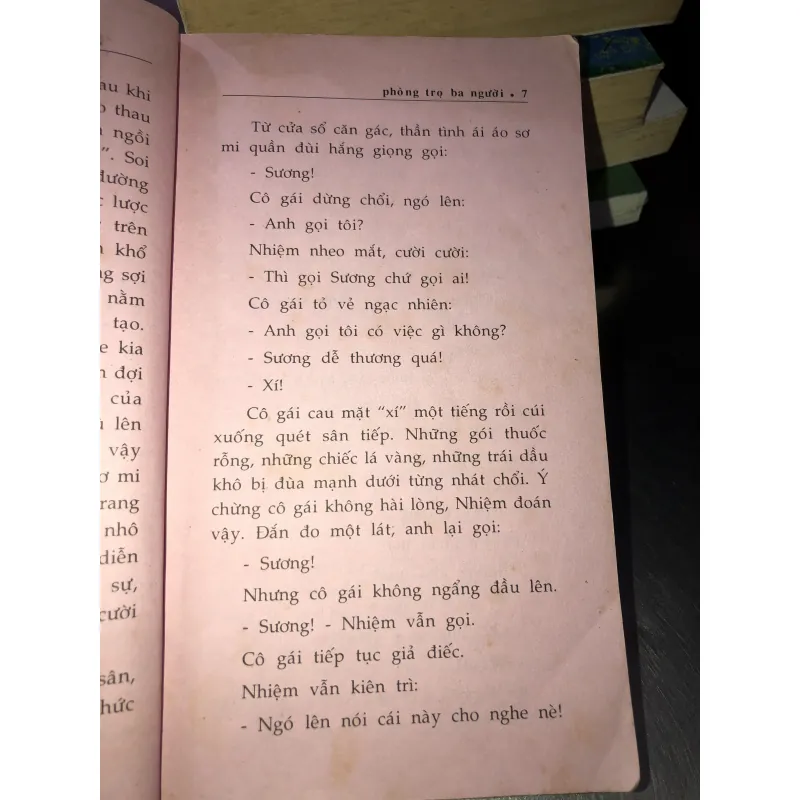 au khi
thau
ngồi
”. Soi
đường
lược
trên
khổ
ng sợi
nằm
tạo.
e kia
đợi
của
lên
vậy
ơ mi
rang
nhô
diễn
sự,
cười
sân,
hức
phòng trọ ba người • 7
Từ cửa sổ căn gác, thần tình ái áo sơ
mi quần đùi hắng giọng gọi:
- Sương!
Cô gái dừng chổi, ngó lên:
- Anh gọi tôi?
Nhiệm nheo mắt, cười cười:
- Thì gọi Sương chứ gọi ai!
Cô gái tỏ vẻ ngạc nhiên:
- Anh gọi tôi có việc gì không?
- Sương dễ thương quá!
- Xí!
Cô gái cau mặt “xí” một tiếng rồi cúi
xuống quét sân tiếp. Những gói thuốc
rỗng, những chiếc lá vàng, những trái dầu
khô bị đùa mạnh dưới từng nhát chổi. Ý
chừng cô gái không hài lòng, Nhiệm đoán
vậy. Đắn đo một lát, anh lại gọi:
- Sương!
Nhưng cô gái không ngẩng đầu lên.
- Sương! - Nhiệm vẫn gọi.
Cô gái tiếp tục giả điếc.
Nhiệm vẫn kiên trì:
- Ngó lên nói cái này cho nghe nè!